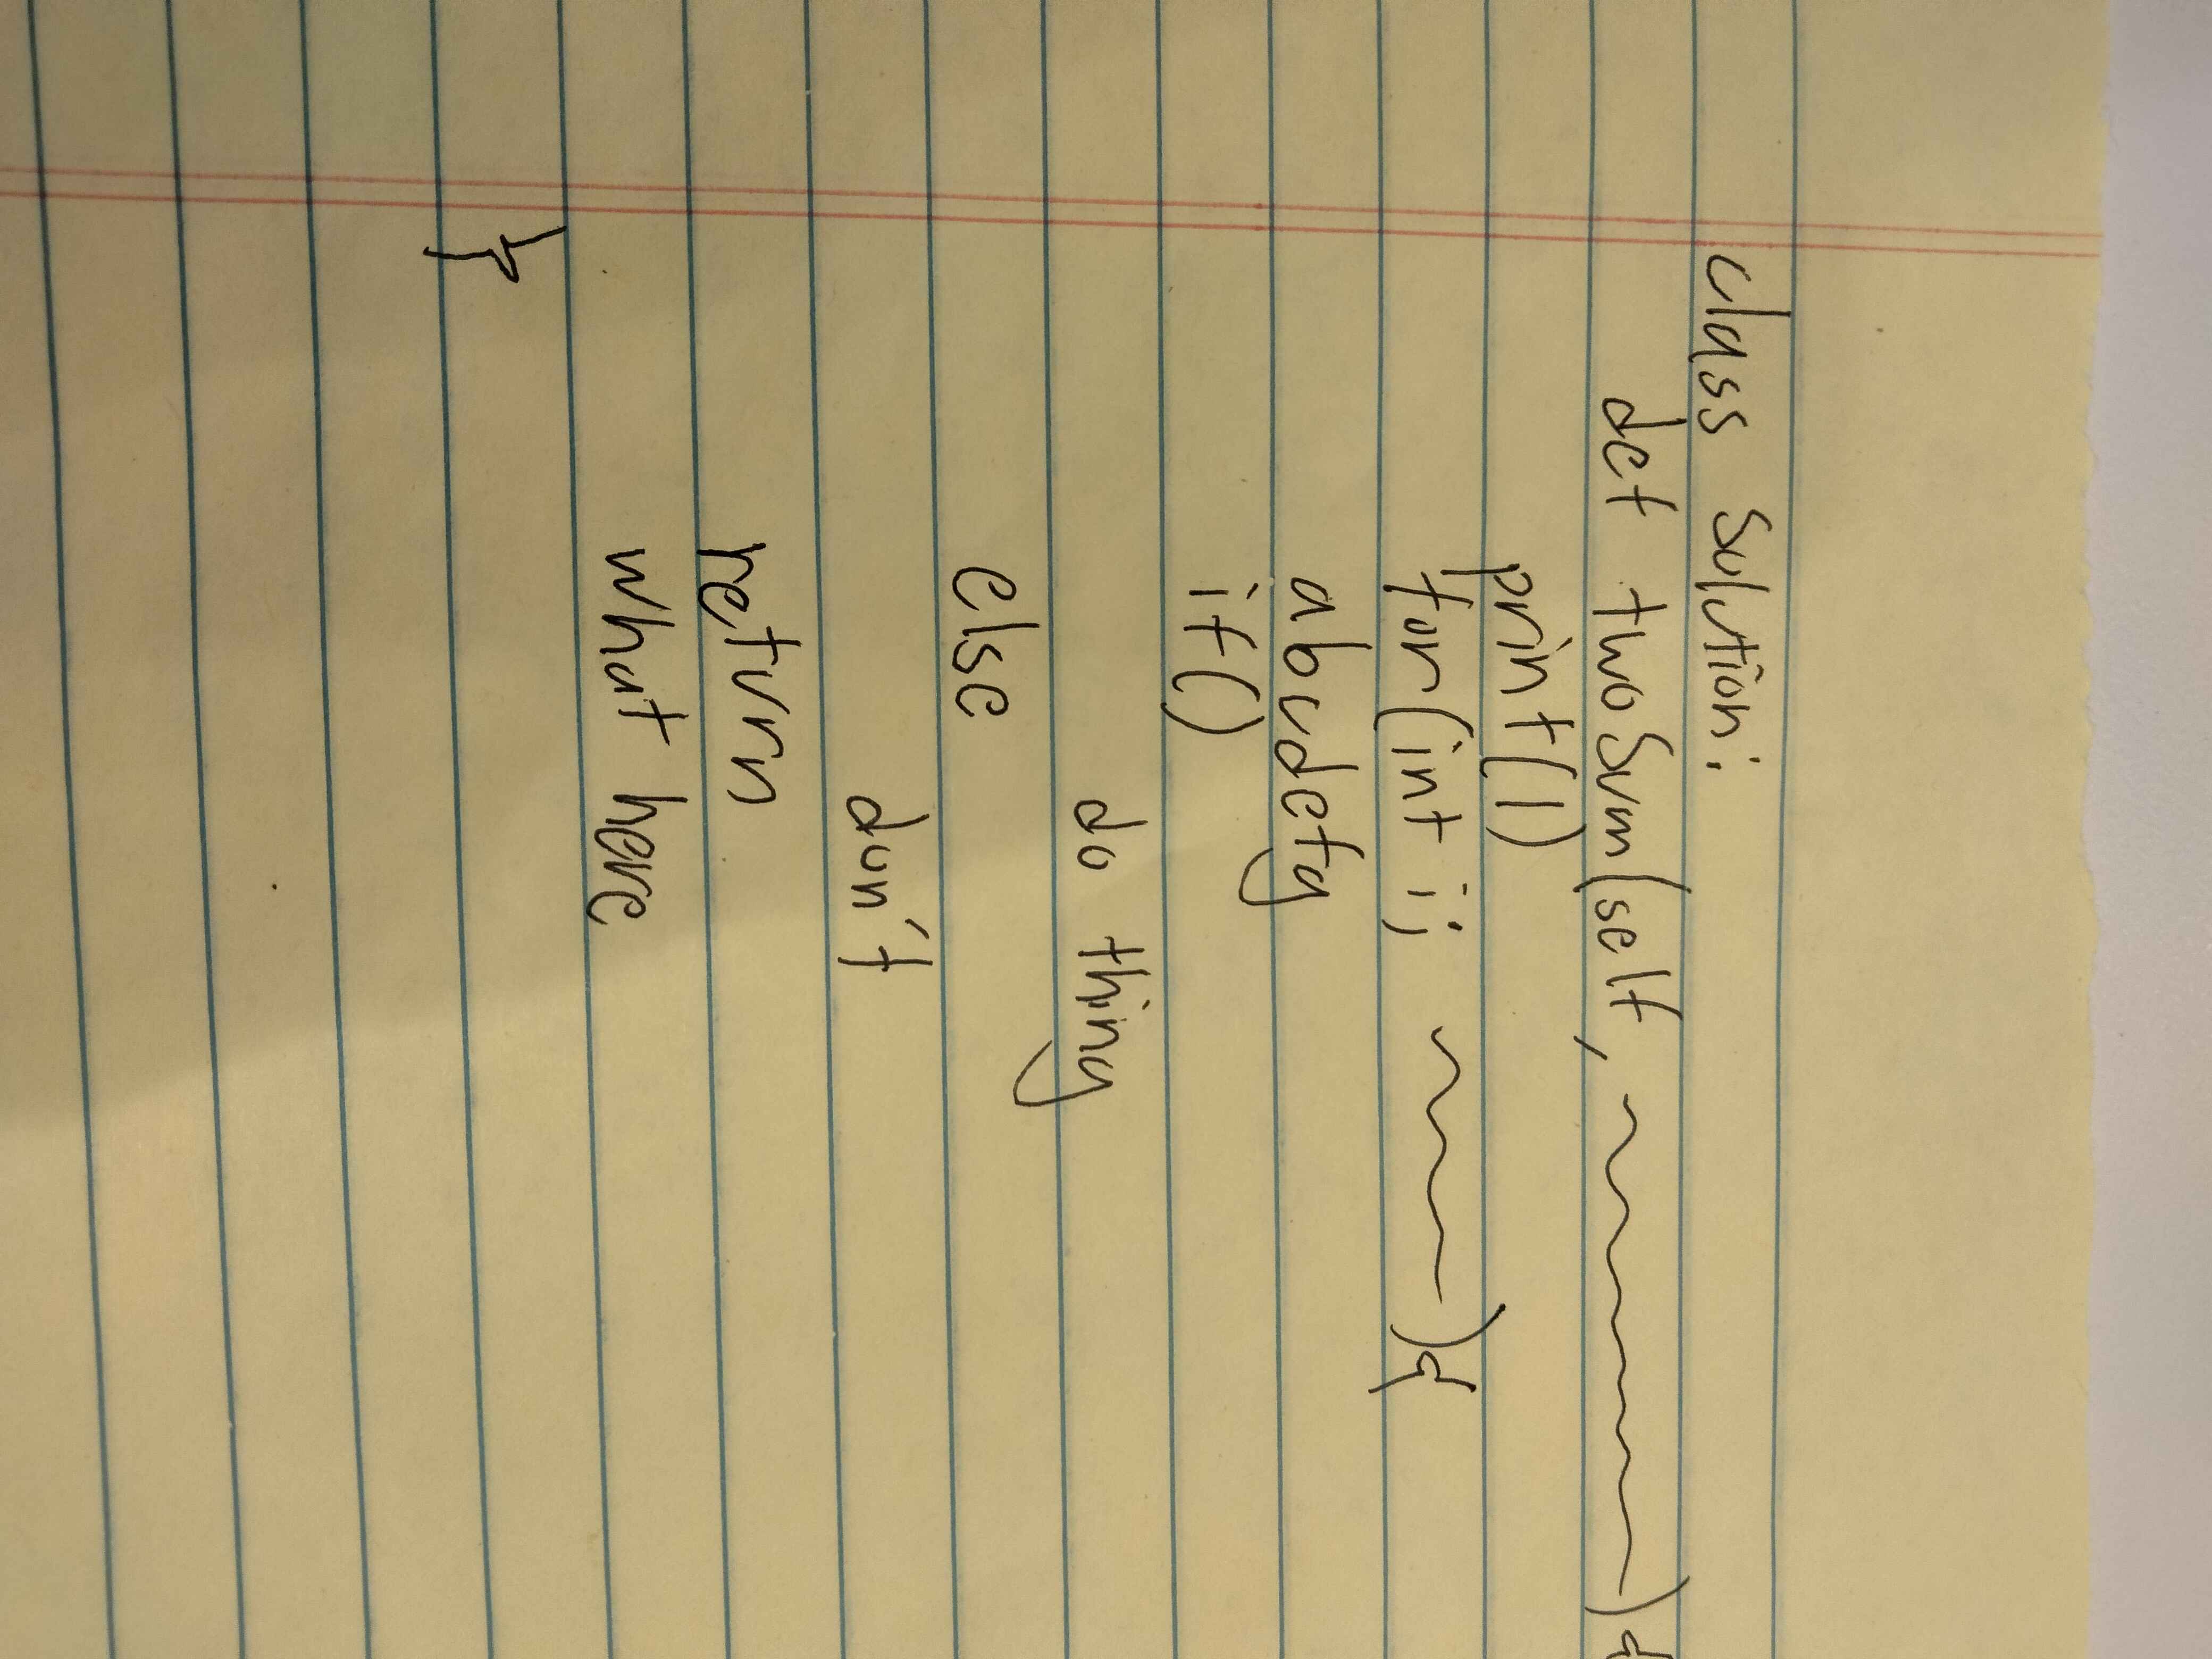 class Solution:
def twoSum(self, ~~~~~~~){
print(1)
for(int i; ~~~~){
abcdefg
if()
do thing
else
don't
return
what here
}